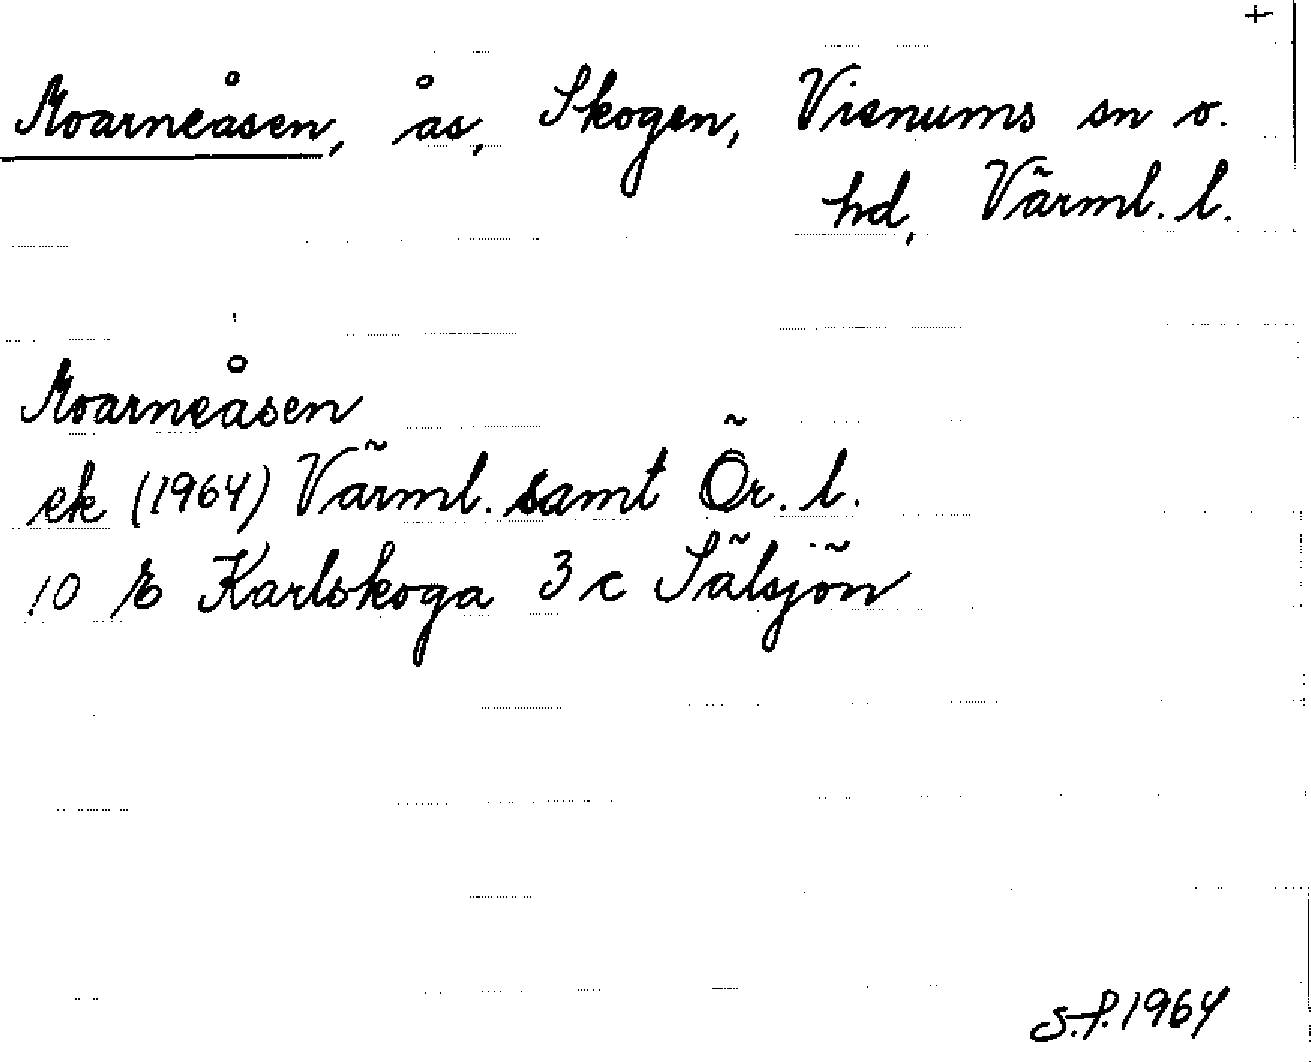 +
Moarneåsen, ås, Skogen, Visnums sn o.
hd, Värml. l.
Moarneåsen
ek (1964) Värml. samt Ör. l.
10 E Karlskoga 3 c Sälsjön
S.f. 1964